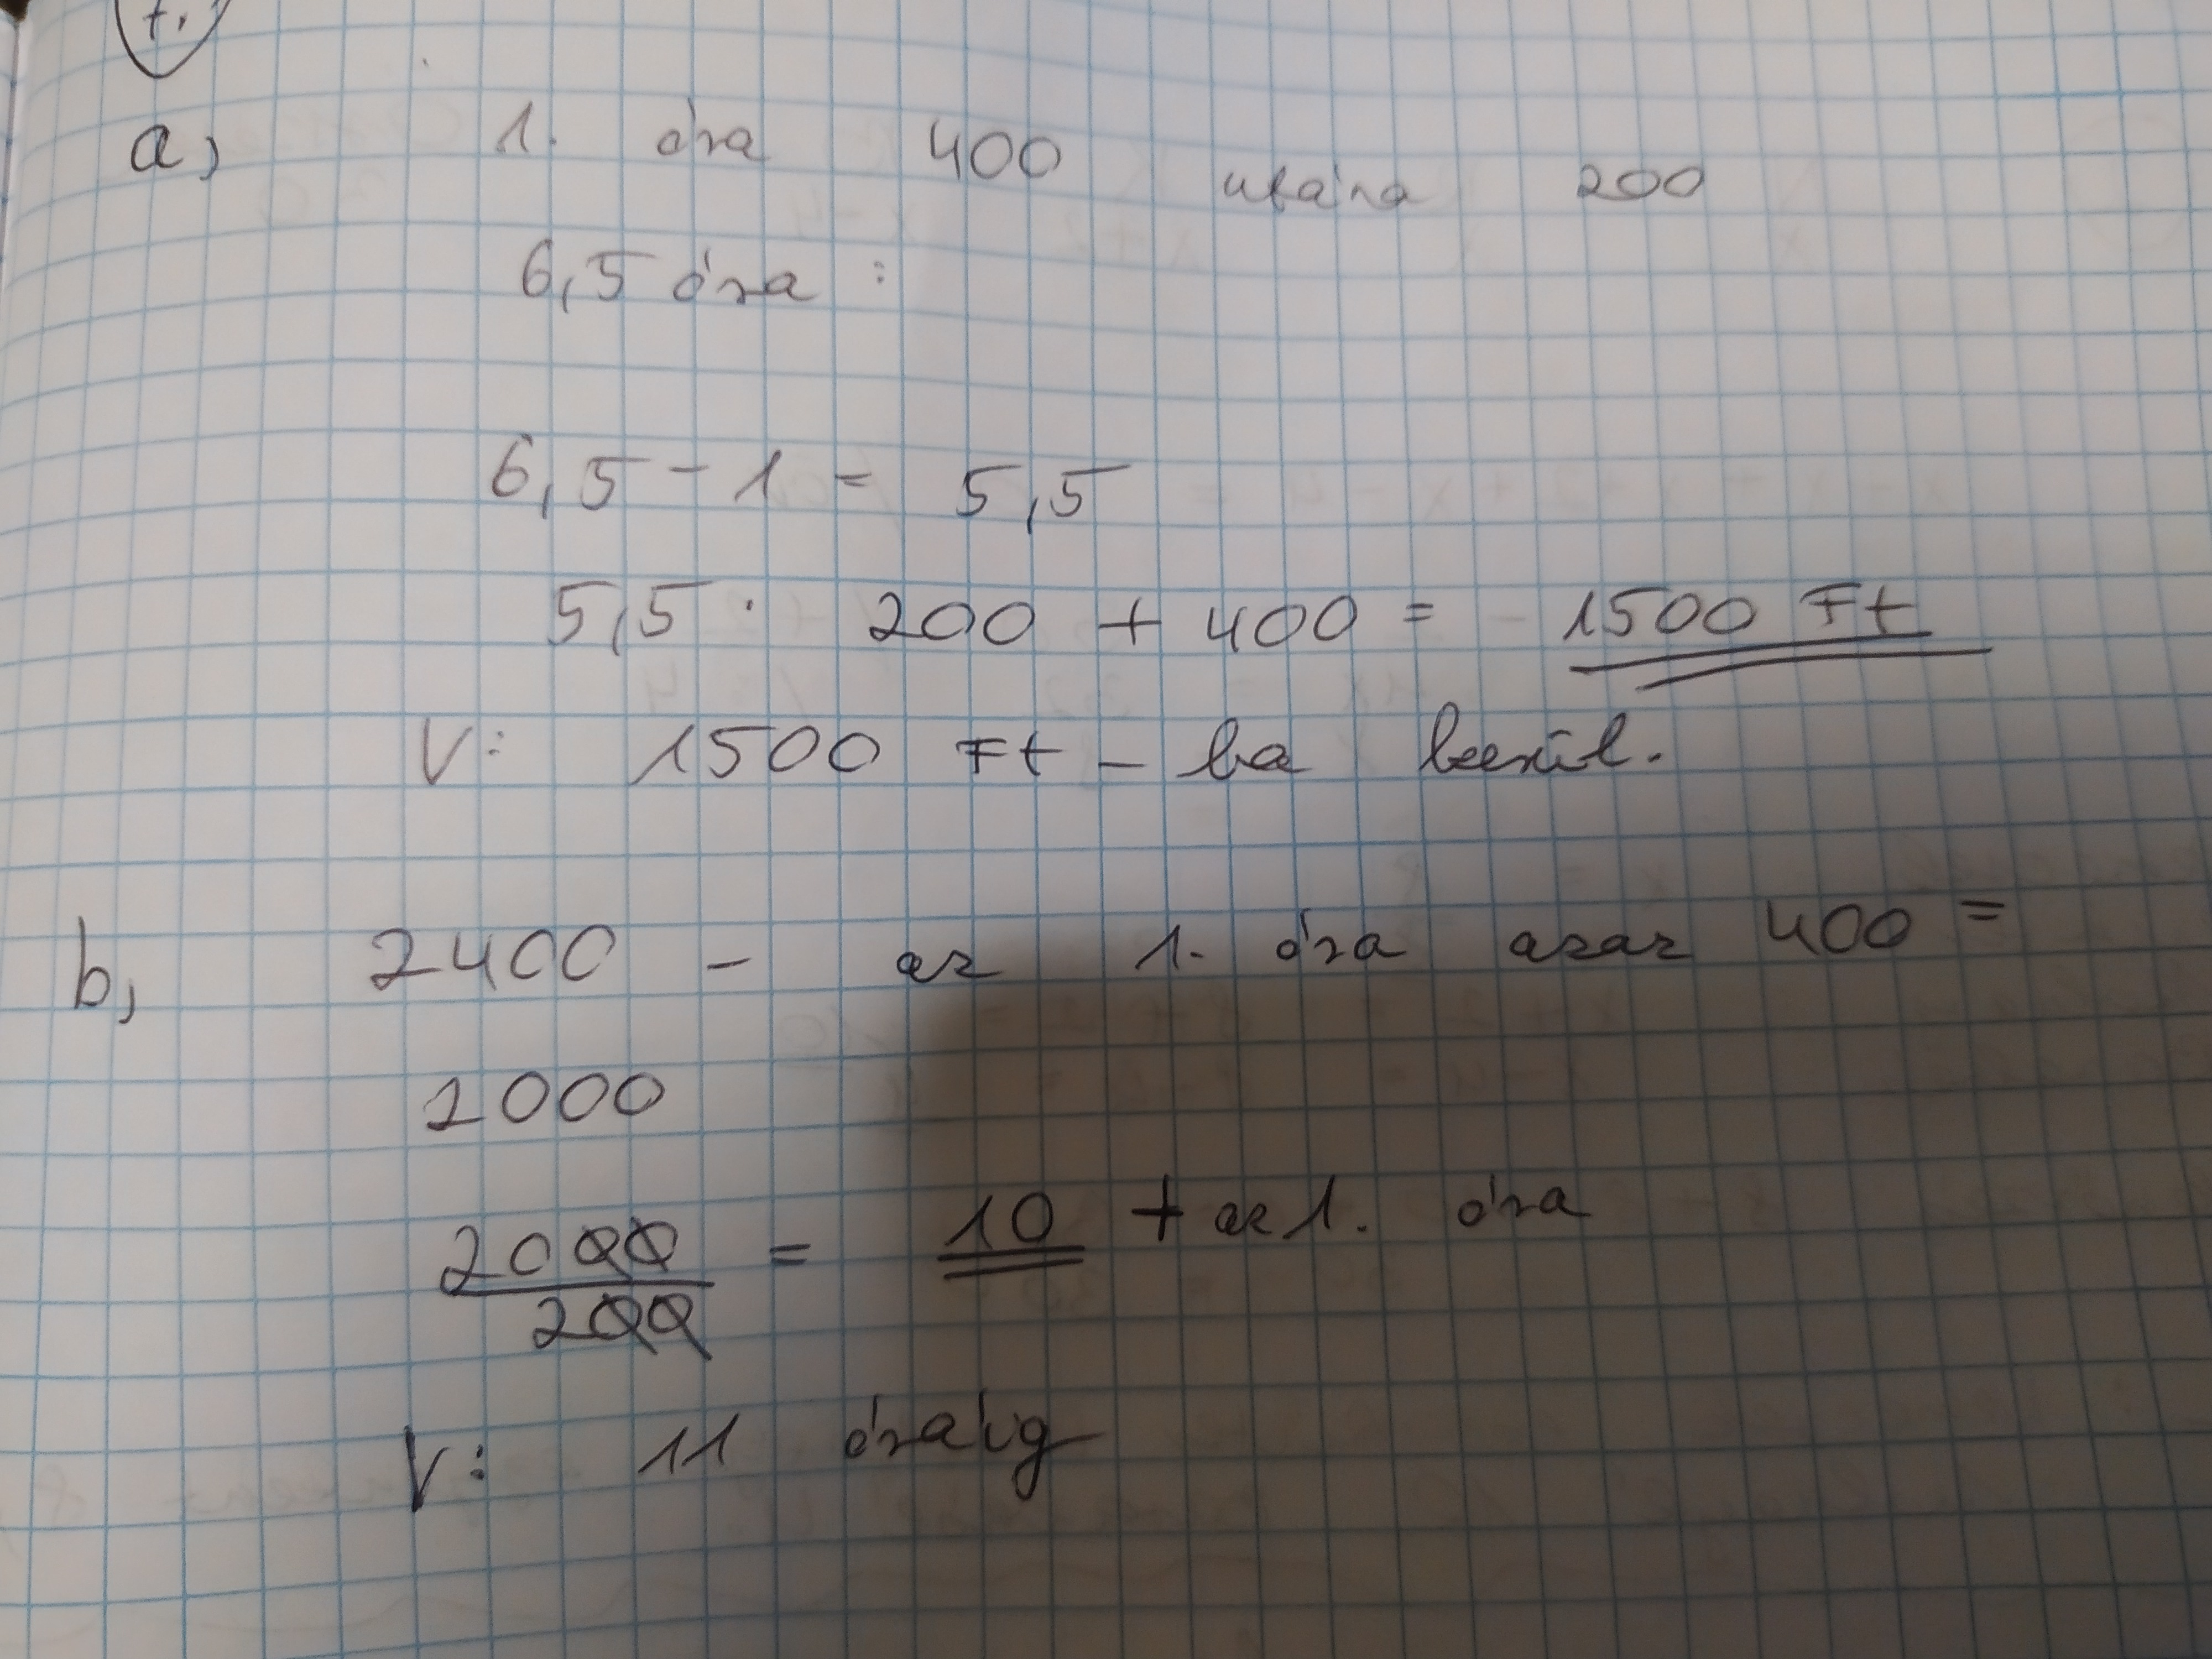 1.
a, 1. óra 400 utána 200
6,5 óra :
6,5 - 1 = 5,5
5,5 · 200 + 400 = 1500 Ft
V: 1500 Ft - ba kerül.
b, 2400 - az 1. óra azaz 400 =
2000
2000/200 = 10 + az 1. óra
V: 11 óráig